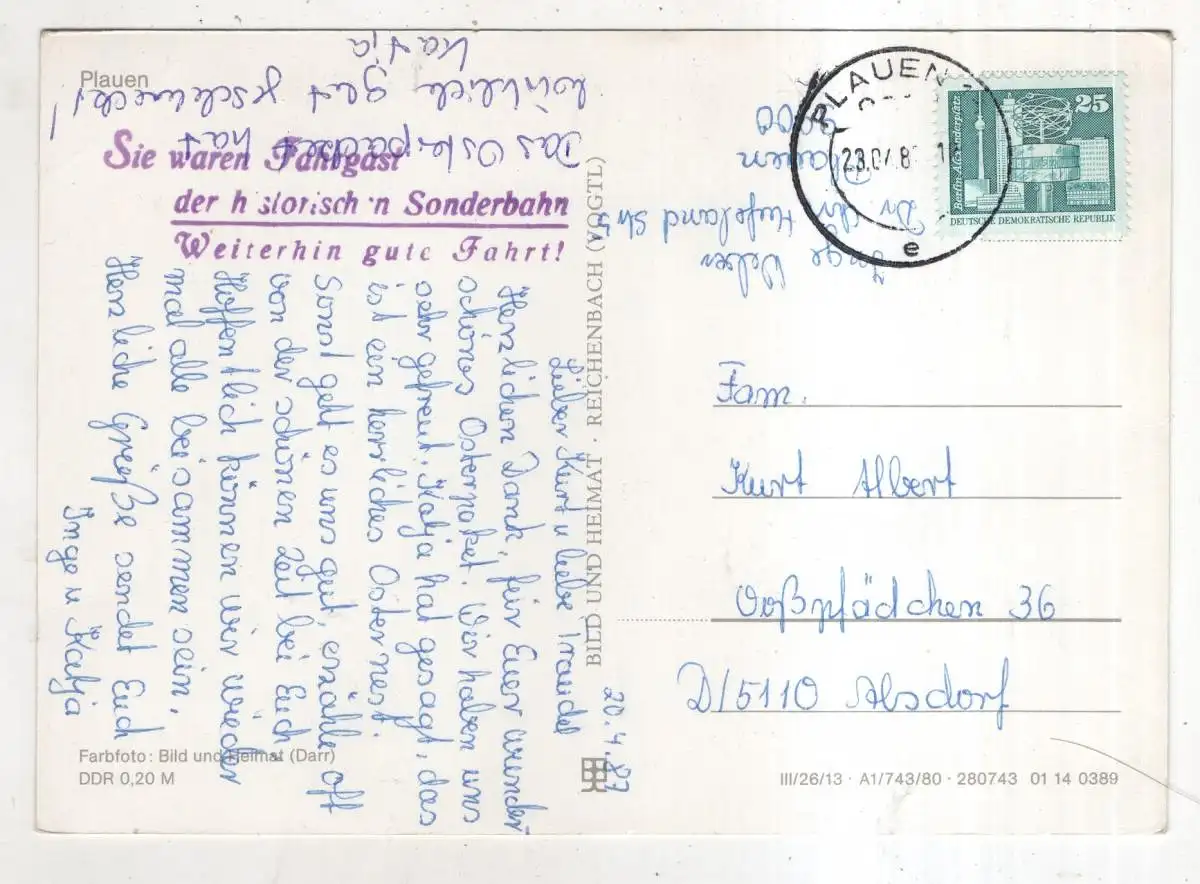 Plauen
Sie waren Fahrgast
der historischen Sonderbahn
Weiterhin gute Fahrt!
20.4.87
Lieber Kurt u liebe Traudel
Herzlichen Dank, für Euer wunder-
schönes Osterpaket. Wir haben uns
sehr gefreut. Katja hat gesagt, das
ist ein herrliches Osternest
Sonst geht es uns gut, erzähle oft
von der schönen Zeit bei Euch
Hoffentlich können wir wieder
mal alle beisammen sein,
Herzliche Grüße sendet Euch
Inge u Katja
Das Osterpacket hat
wirklich gut geschmeckt!
Katja
Inge
Hufeland Str
Plauen
9900
PLAUEN
23.04.8
e
25
Berlin-Alexanderplatz
DEUTSCHE DEMOKRATISCHE REPUBLIK
BILD UND HEIMAT · REICHENBACH (VOGTL)
Fam.
Kurt Albert
Voßpfädchen 36
D/5110 Alsdorf
Farbfoto: Bild und Heimat (Darr)
DDR 0,20 M
III/26/13 · A1/743/80 · 280743 01 14 0389